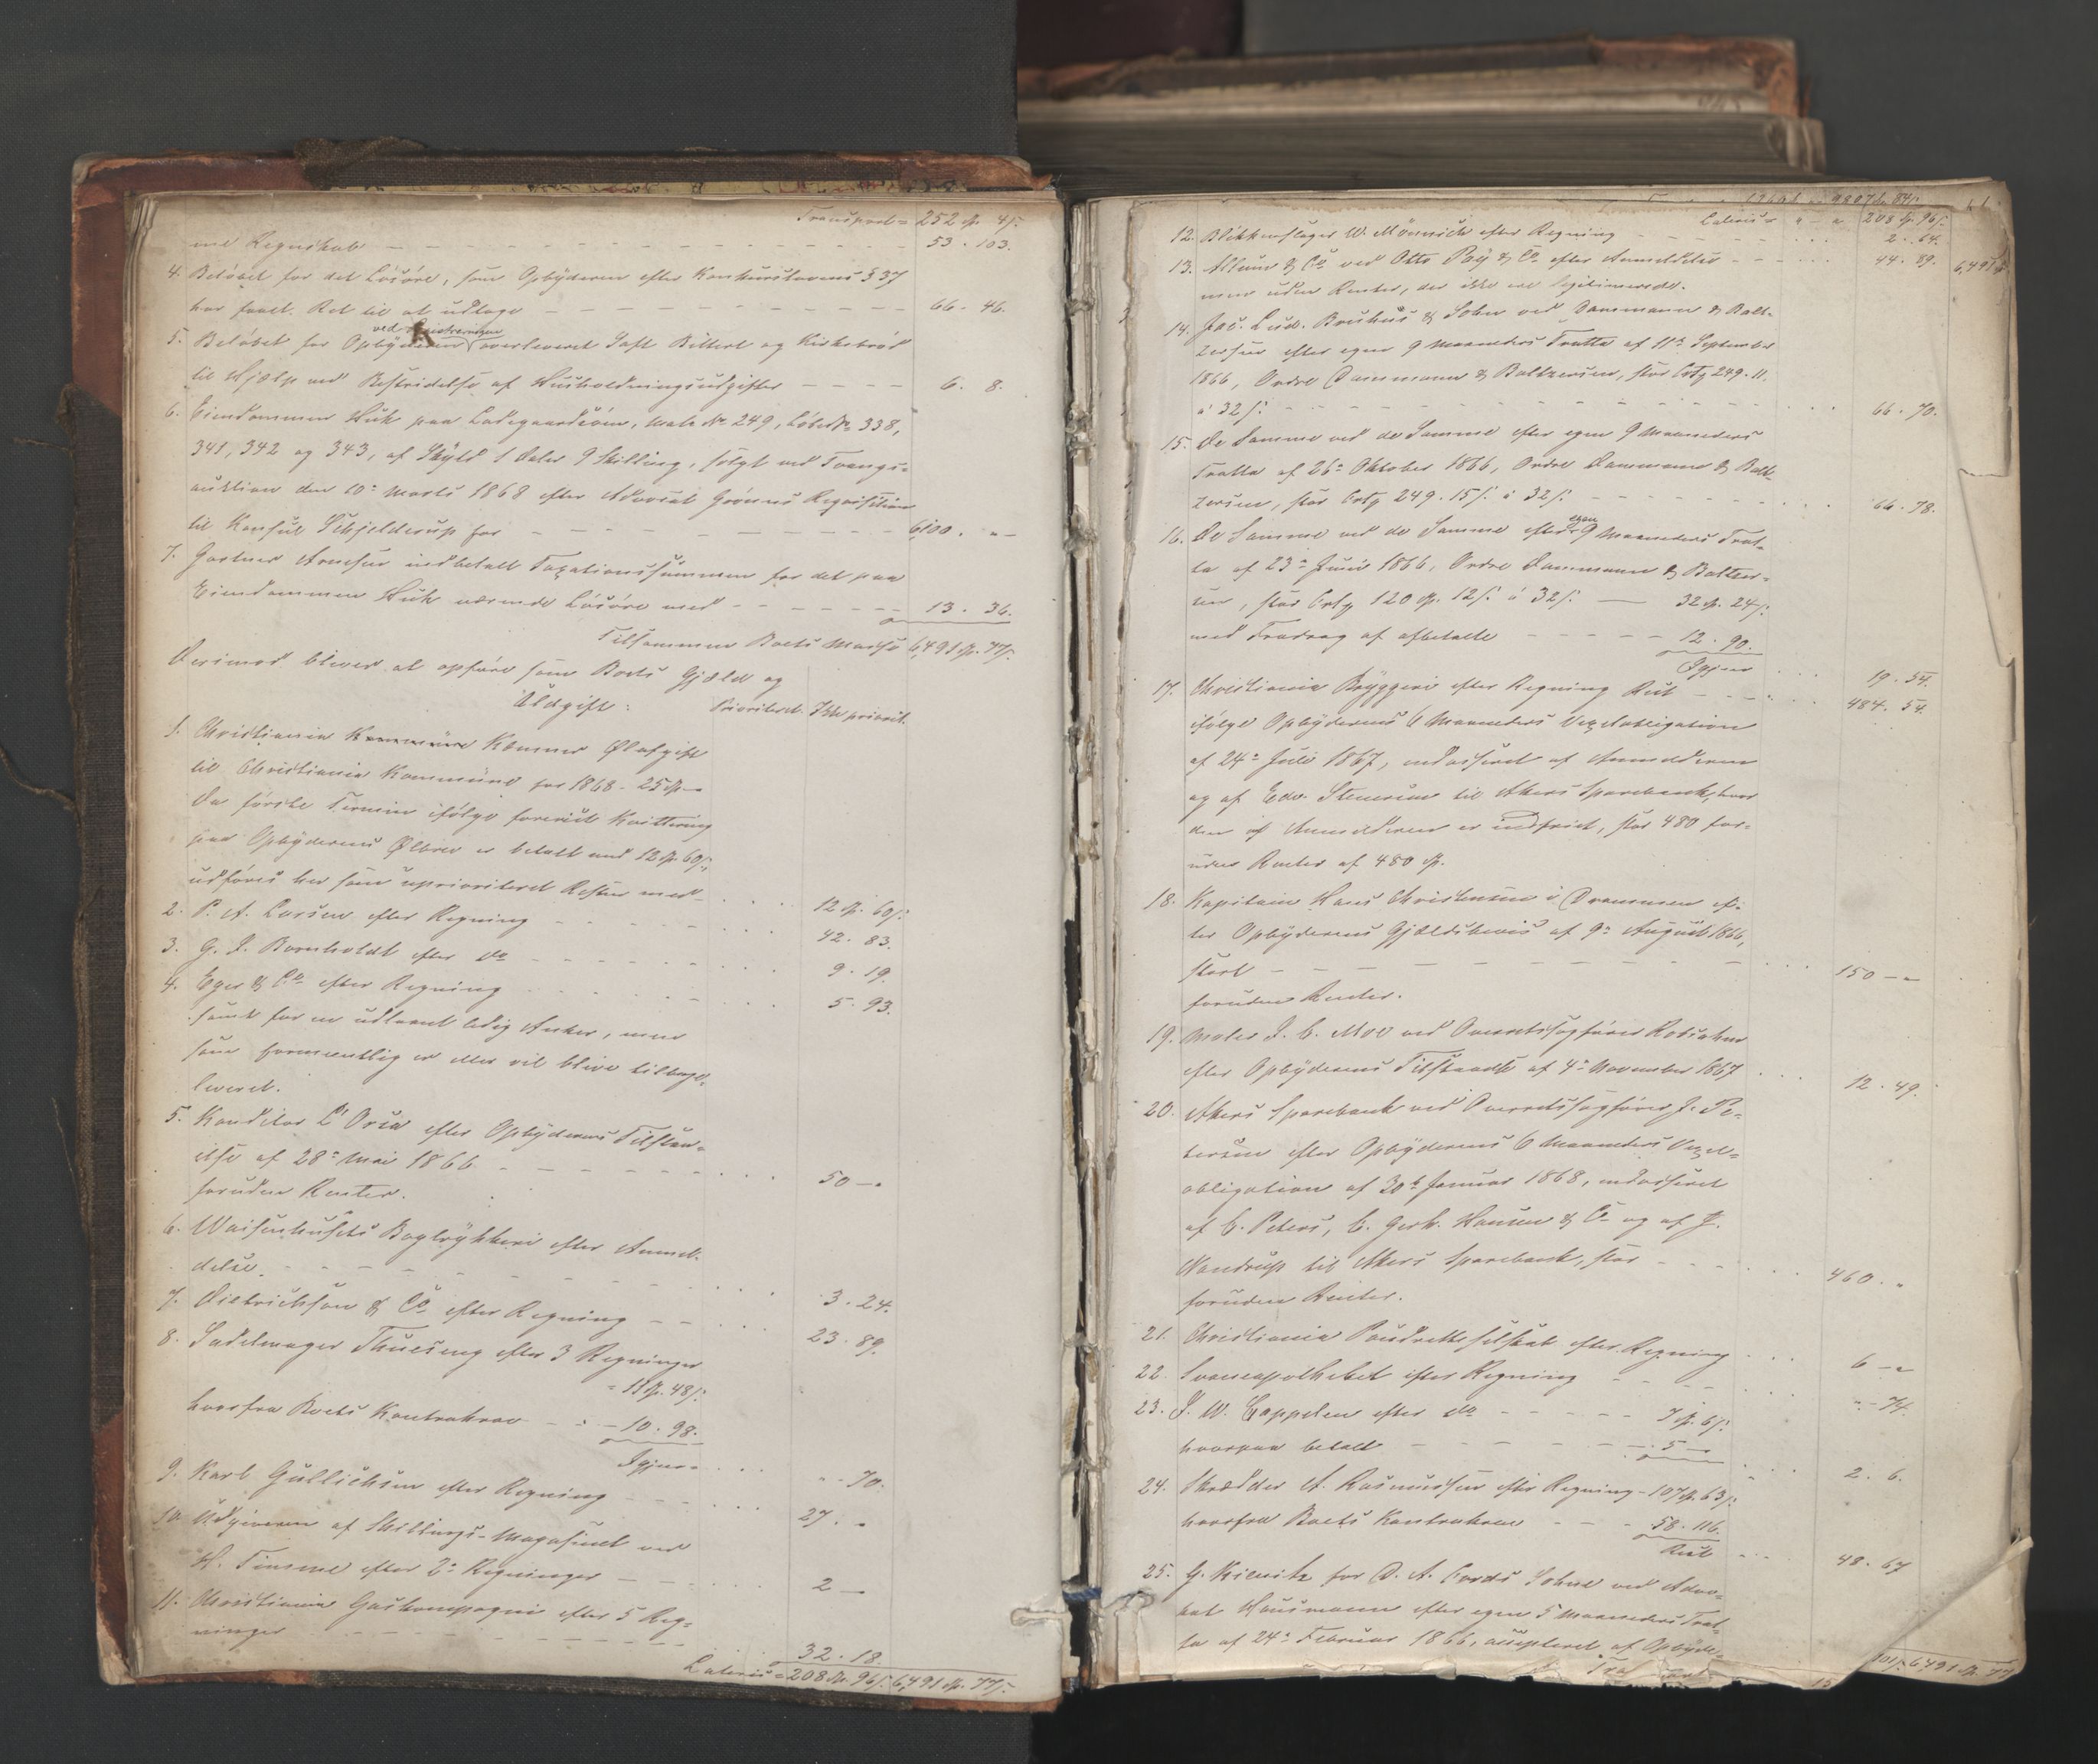 Transport = 252 Sp. 4 ß.
me Regnskab — 53 . 103.
4. Beløbet for det Løsøre, som Opbyderen efter Konkurslovens § 37
har faaet Ret til at udtage — 66 - 46.
5. Beløbet for Opbyderen ved Registreringen overleveret Saft
til Hjælp ved Bestridelse af Husholdningsudgifter — 6 . 8.
6. Eiendommen Huk paa Ladegaardsøen, Matr. No 249, Løbe No 338,
341, 342 og 343, af Skyld 1 Daler 9 Skilling, solgt ved Tvangs-
auktion den 10de Marts 1868 efter Advocat Rekvisition
til Konsul Schjelderup for — 6100 . " —
7. Gartner Arnesen indbetalt Taxationssummen for det paa
Eiendommen Huk værende Løsøre med — 13 . 36.
Tilsammen Boets Masse 6,491 Sp. 77 ß.
Derimod bliver at opføre som Boets Gjæld og
Udgift: Prioriteret. Ikke priorit.
1. Christiania Kommune Kæmner Ølafgift
til Christiania Kommune for 1868 - 25 Sp —
Da første Termin ifølge forevist Kvittering
paa Opbyderens Ølbrev er betalt med 12 Sp. 60 ß,
udføres her som uprioriteret Resten med 12 Sp. 60 ß.
2. P. A. Larsen efter Regning — 42 . 83.
3. G. J. Bornholdt efter do — 9 . 19.
4. Eger & Co efter Regning 5 . 93.
samt for en udlaant ledig Anker, men
som formentlig er eller vil blive tilbage-
leveret.
5. Konditor L'Orsa efter Opbyderens Tilstaa-
else af 28de Mai 1866 — 50 — "
foruden Renter.
6. Waisenhusets Bogtrykkeri efter Anmel-
delse — 3 . 24.
7. Dietrichson & Co efter Regning — 23 . 89.
8. Sadelmager Thuesen efter 3 Regninger
= 11 Sp. 48 ß.
hvorfra Boets Kontrakrav — 10 . 98.
Igjen = " . 70.
9. Karl Gullichsen efter Regning — 27 . "
10. Udgiveren af Skillings-Magasinet ved
H. efter 2de Regninger — 2 — "
11. Christiania Gaskompagni efter 5 Reg-
ninger — 32 . 18.
Lateris = 208 Sp. 96 ß. 6,491 Sp. 77 ß.
Lateris = " — " 208 Sp. 96 ß.
12. Blikkenslager W. efter Regning — 2 . 64.
13. Allum & Co ved Otto Pay & Co efter Anmeldelse — 44 . 89. 6,491
men uden Renter, der ikke ere legitimerede.
14. Jac. Lud. & Sohn ved Dammann & Balt-
zersen efter egen 9 Maaneders Tratta af 11te September
1866, Ordre Dammann & Baltzersen, stor Crtg 249 . 11.
à 32 ß. — 66 . 70.
15. De Samme ved de Samme efter egen 9 Maaneders
Tratta af 26de Oktober 1866, Ordre Dammann & Balt-
zersen, stor Crtg 249 . 15 ß. à 32 ß. — 66 . 78.
16. De Samme ved de Samme efter egen 9 Maaneders Trat-
ta af 23de Juni 1866, Ordre Dammann & Baltzer-
sen, stor Crtg 120 Sp. 12 ß. à 32 ß. — 32 Sp. 24 ß.
med Fradrag af afbetalte — 12 . 90.
Igjen 19 . 54.
17. Christiania Bryggeri efter Regning Rest — 484 . 54.
ifølge Opbyderens 6 Maaneders Vexelobligation
af 24de Juli 1867, endosseret af Anmelderen
og af Edv. Stenersen til Akers Sparebank, hvor
den af Anmelderen er indfriet, stor 480 for-
uden Renter af 480 Sp.
18. Kapitain Hans Christensen i Drammen ef-
ter Opbyderens Gjældsbevis af 9de August 1866,
stort — 150 — "
foruden Renter.
19. Maler J. C. Moe ved Overretssagfører
efter Opbyderens Tilstaaelse af 4de November 1867 12 . 49.
20. Akers Sparebank ved Overretssagfører J. Pe-
tersen efter Opbyderens 6 Maaneders Vexel-
obligation af 30te Januar 1868, endosseret
af C. Peters, C. Gerh. Hansen & Co og af J.
Nandrup til Akers Sparebank, stor — 460 . "
foruden Renter.
21. Christiania Poudretteselskab efter Regning 6 — "
22. Svaneapotheket efter Regning — " . 74.
23. J. W. Cappelen efter do — 7 Sp. 6 ß.
hvorpaa betalt — 5 — " 2 . 6.
24. Skrædder A. Rasmussen efter Regning - 107 Sp. 63 ß.
hvorfra Boets Kontrakrav — 58 . 116.
Rest 48 . 67
25. G. for D. A. Cords Sohne ved Advo-
kat Housmann efter egen 5 Maaneders Trat-
ta af 24de Februar 1866, accepteret af Opbyde-
6,491 Sp. 77